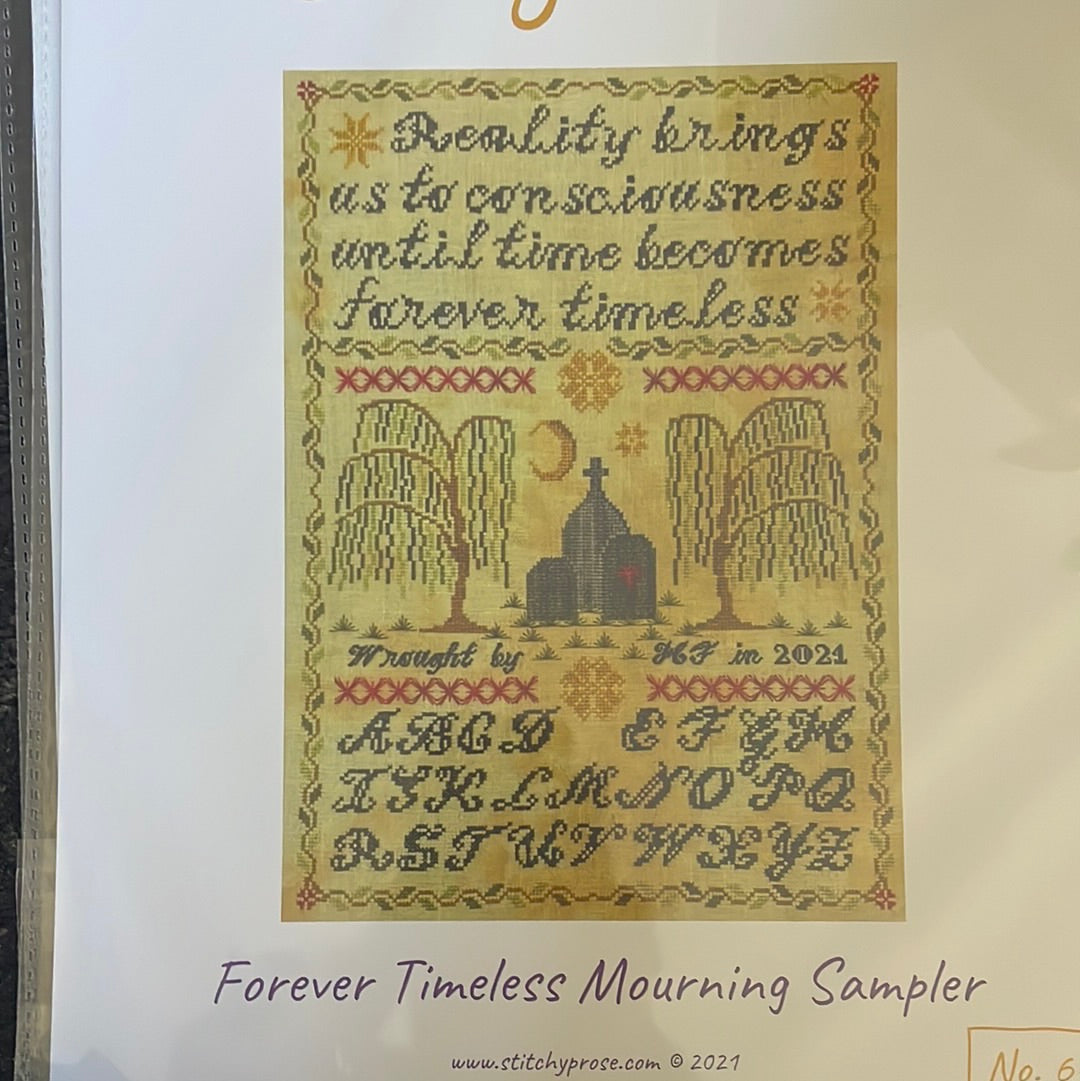 Reality brings
us to consciousness
until time becomes
forever timeless
Wrought by MF in 2021
A B C D E F G H
I J K L M N O P Q
R S T U V W X Y Z
Forever Timeless Mourning Sampler
www.stitchyprose.com © 2021
No. 6